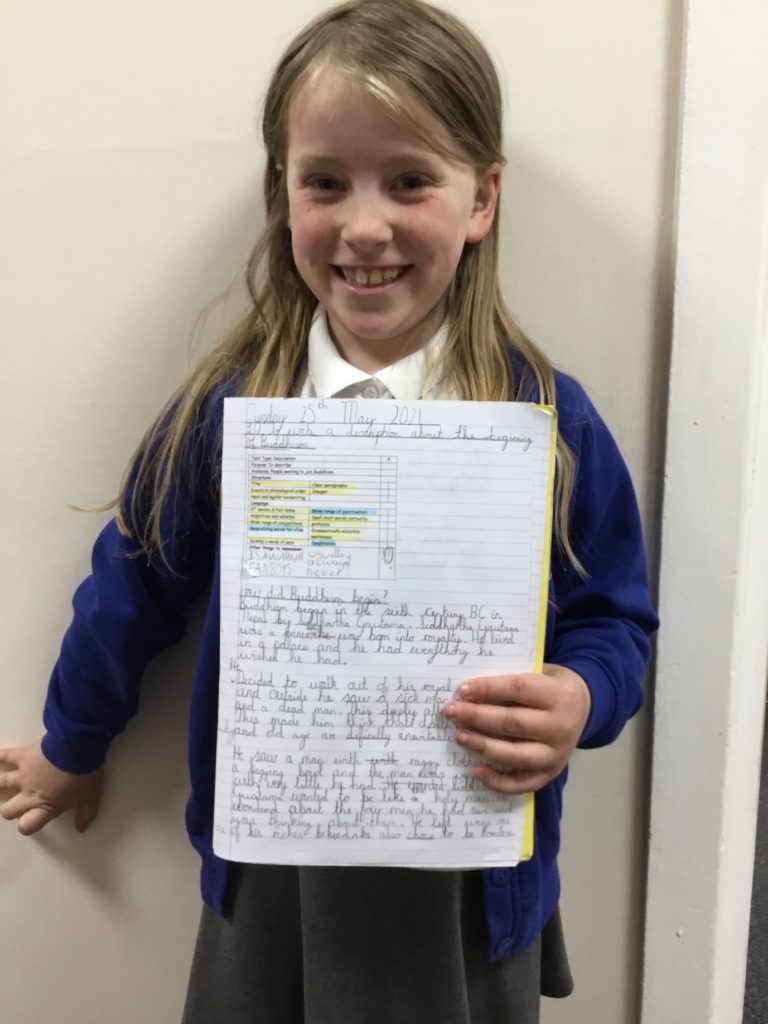 Tuesday 25th May 2021
to write a description about the beginning
of Buddhism
Text Type: Description
Purpose: To describe
Audience: People wanting to join Buddhism
Structure:
Title Clear paragraphs
Events in chronological order Images
Neat and legible handwriting
Language:
3rd person & Past tense Wide range of punctuation
Adjectives and adverbs Spell most words correctly
Wide range of conjunctions pronouns
Describing words for style Grammatically accurate
sentences
Develop a sense of pace
Other things to remember:
ISAWABUB usually
FANBOYS always
never
How did Buddhism begin?
Buddhism began in the sixth century BC in
Nepal by Siddhartha Gautama. Siddhartha Gautama
was a prince he was born into royalty. He lived
in a palace and he had everything he
wished he had.
He
Decided to walk out of his royal
and outside he saw a sick man
and a dead man. This deeply
This made him think that death
and old age are inevitable
He saw a man with raggy clothes
a begging bowl and the man was
with very little he had. He
Gautama wanted to be like a holy man. He
wondered about the four men he had seen and
was thinking about them. He left
of his riches behind he also chose to be